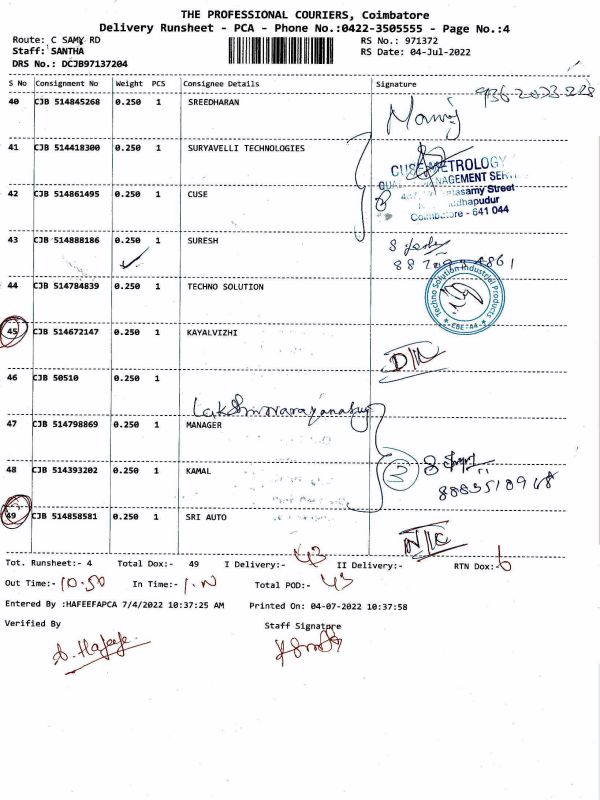 THE PROFESSIONAL COURIERS, Coimbatore
Delivery Runsheet - PCA - Phone No.:0422-3505555 - Page No.:4
Route: C SAMY RD
RS No.: 971372
Staff: SANTHA
RS Date: 04-Jul-2022
DRS No.: DCJB97137204
S No Consignment No Weight PCS Consignee Details Signature
40 CJB 514845268 0.250 1 SREEDHARAN
41 CJB 514418300 0.250 1 SURYAVELLI TECHNOLOGIES
CUSE METROLOGY
42 CJB 514861495 0.250 1 CUSE
Coimbatore - 641 044
43 CJB 514888186 0.250 1 SURESH
44 CJB 514784839 0.250 1 TECHNO SOLUTION
Techno Solution Industrial Products
CBE-44
45 CJB 514672147 0.250 1 KAYALVIZHI
D/L
46 CJB 50510 0.250 1
47 CJB 514798869 0.250 1 MANAGER
3
48 CJB 514393202 0.250 1 KAMAL
49 CJB 514858581 0.250 1 SRI AUTO
N/C
Tot. Runsheet:- 4 Total Dox:- 49 I Delivery:- 43 II Delivery:- RTN Dox:- 6
Out Time:- 10.50 In Time:- Total POD:- 43
Entered By :HAFEEFAPCA 7/4/2022 10:37:25 AM Printed On: 04-07-2022 10:37:58
Verified By Staff Signatpre